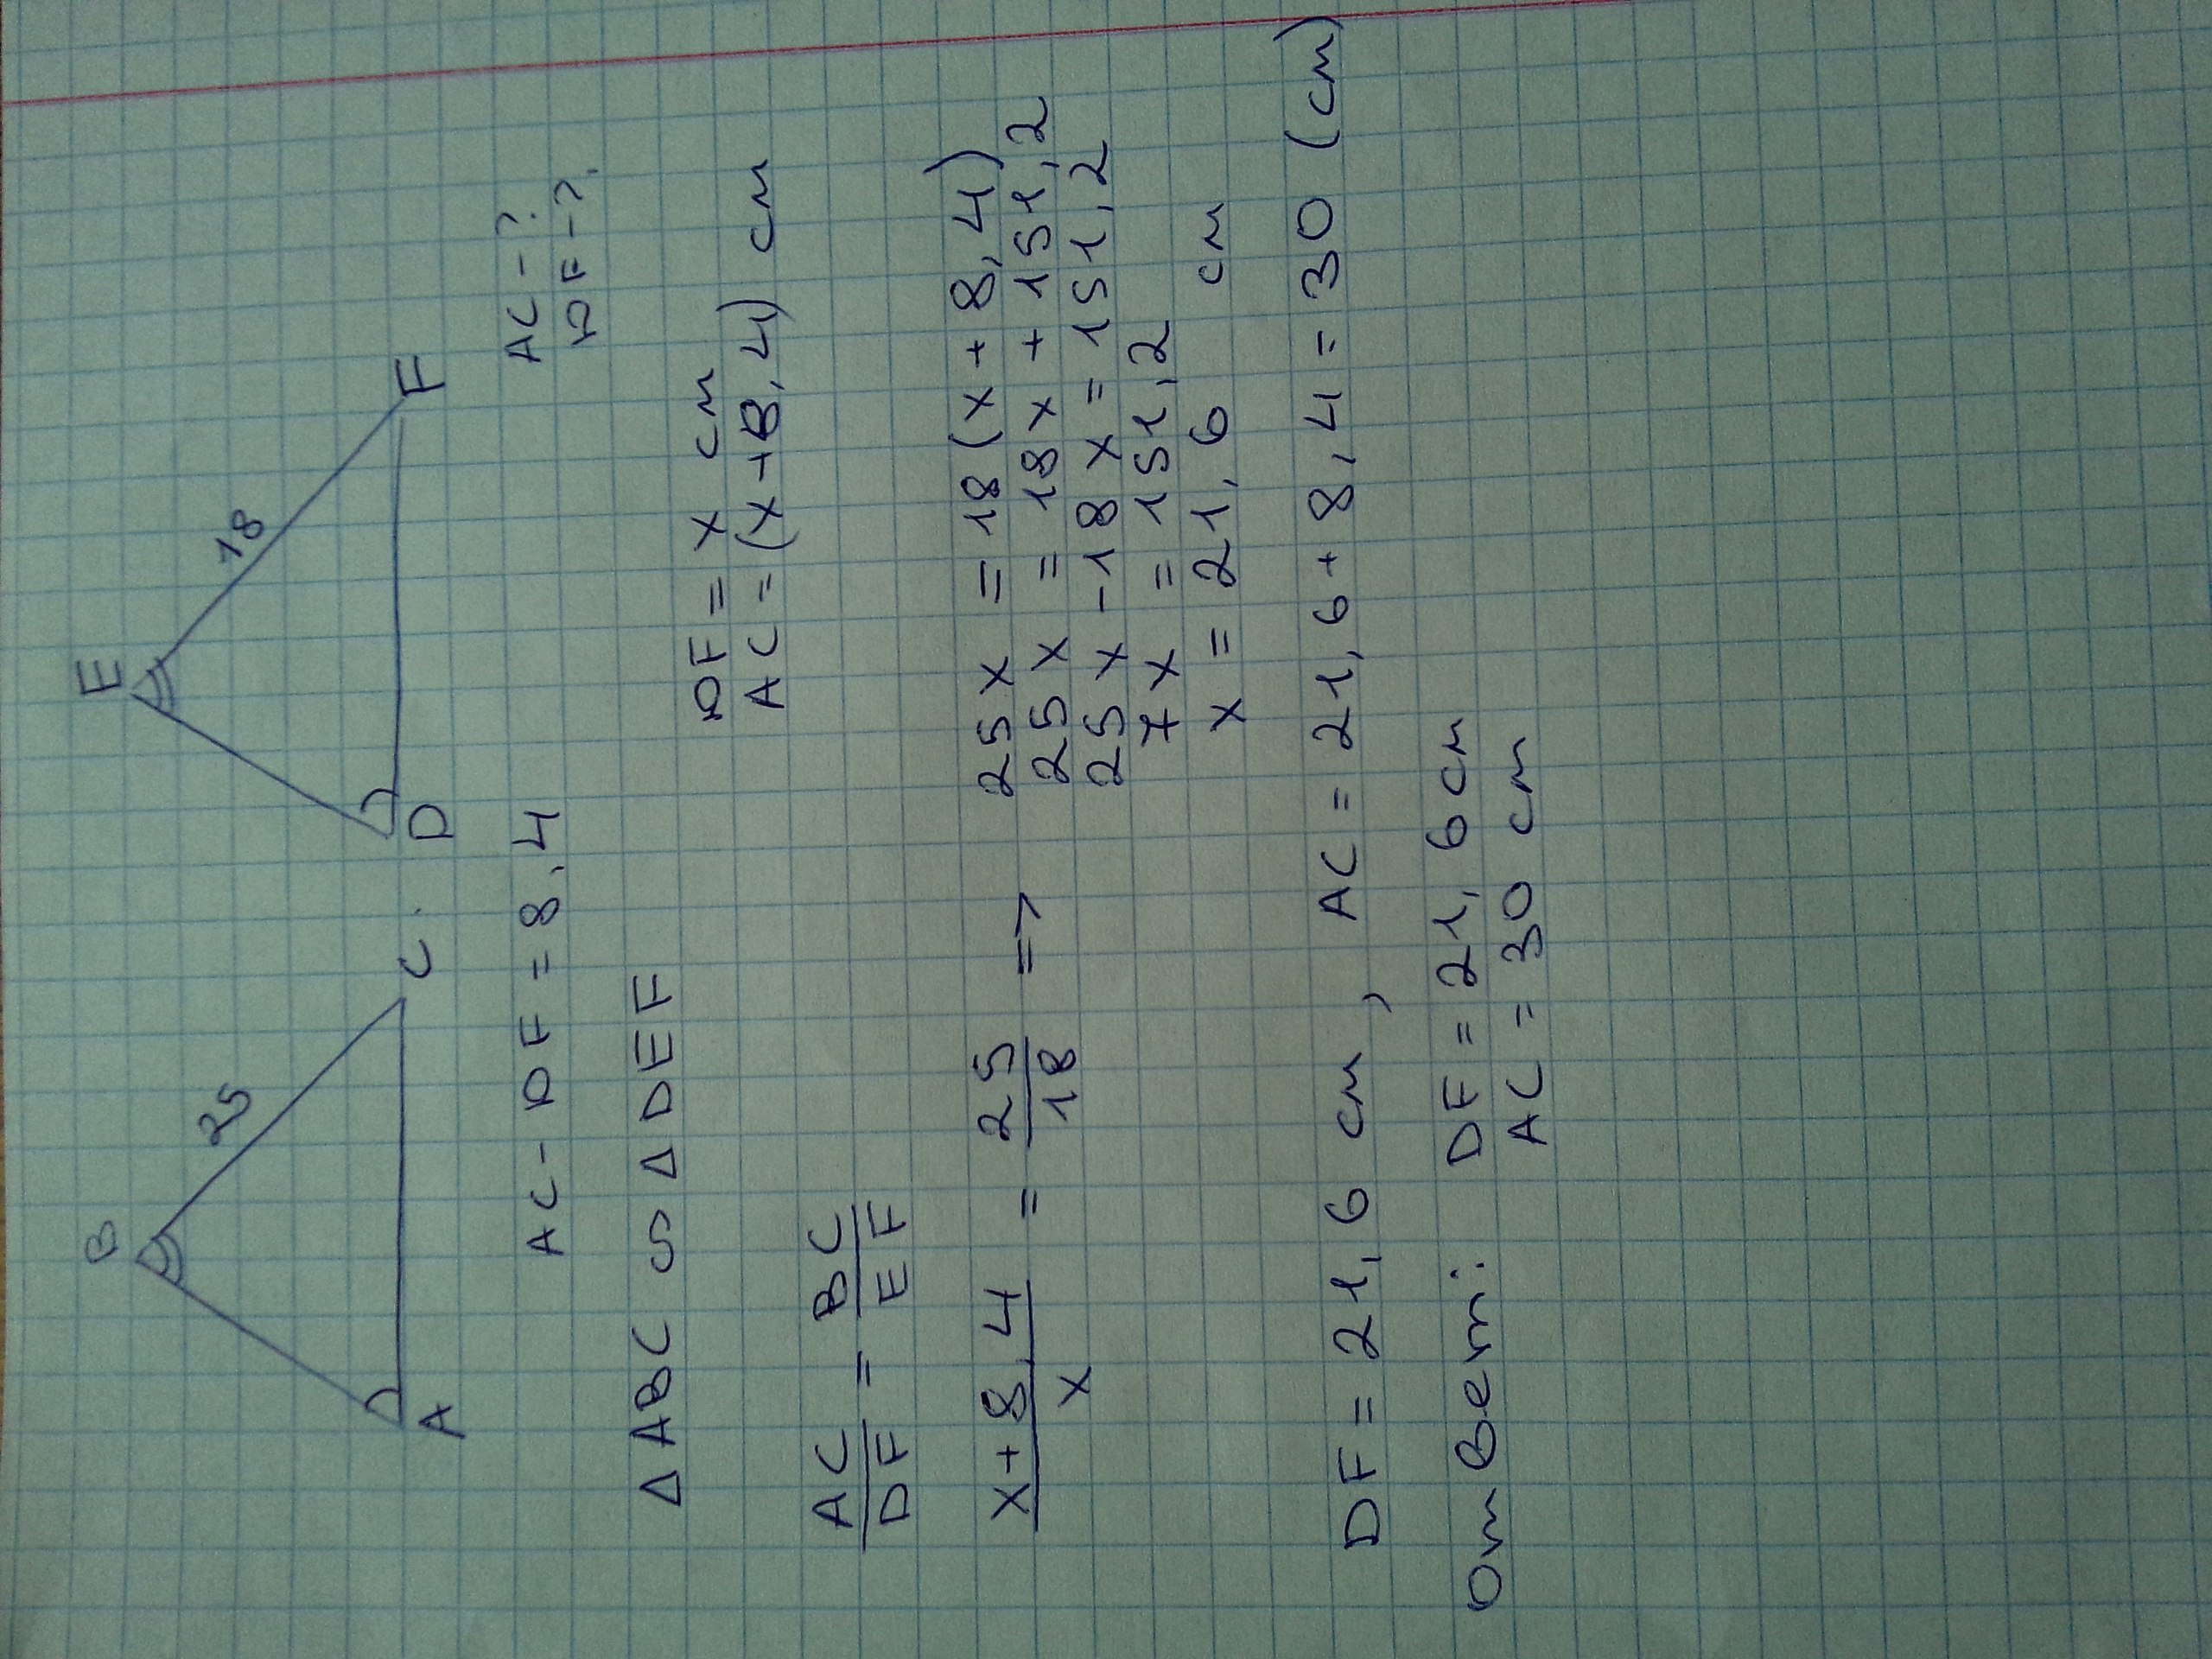 B E
25 18
A C D F
AC - DF = 8,4 AC - ?
DF - ?
△ABC ∽ △DEF
DF = x см
AC = (x + 8,4) см
AC/DF = BC/EF
(x + 8,4)/x = 25/18 =>
25x = 18(x + 8,4)
25x = 18x + 151,2
25x - 18x = 151,2
7x = 151,2
x = 21,6 см
DF = 21,6 см, AC = 21,6 + 8,4 = 30 (см)
Ответ: DF = 21,6 см
AC = 30 см